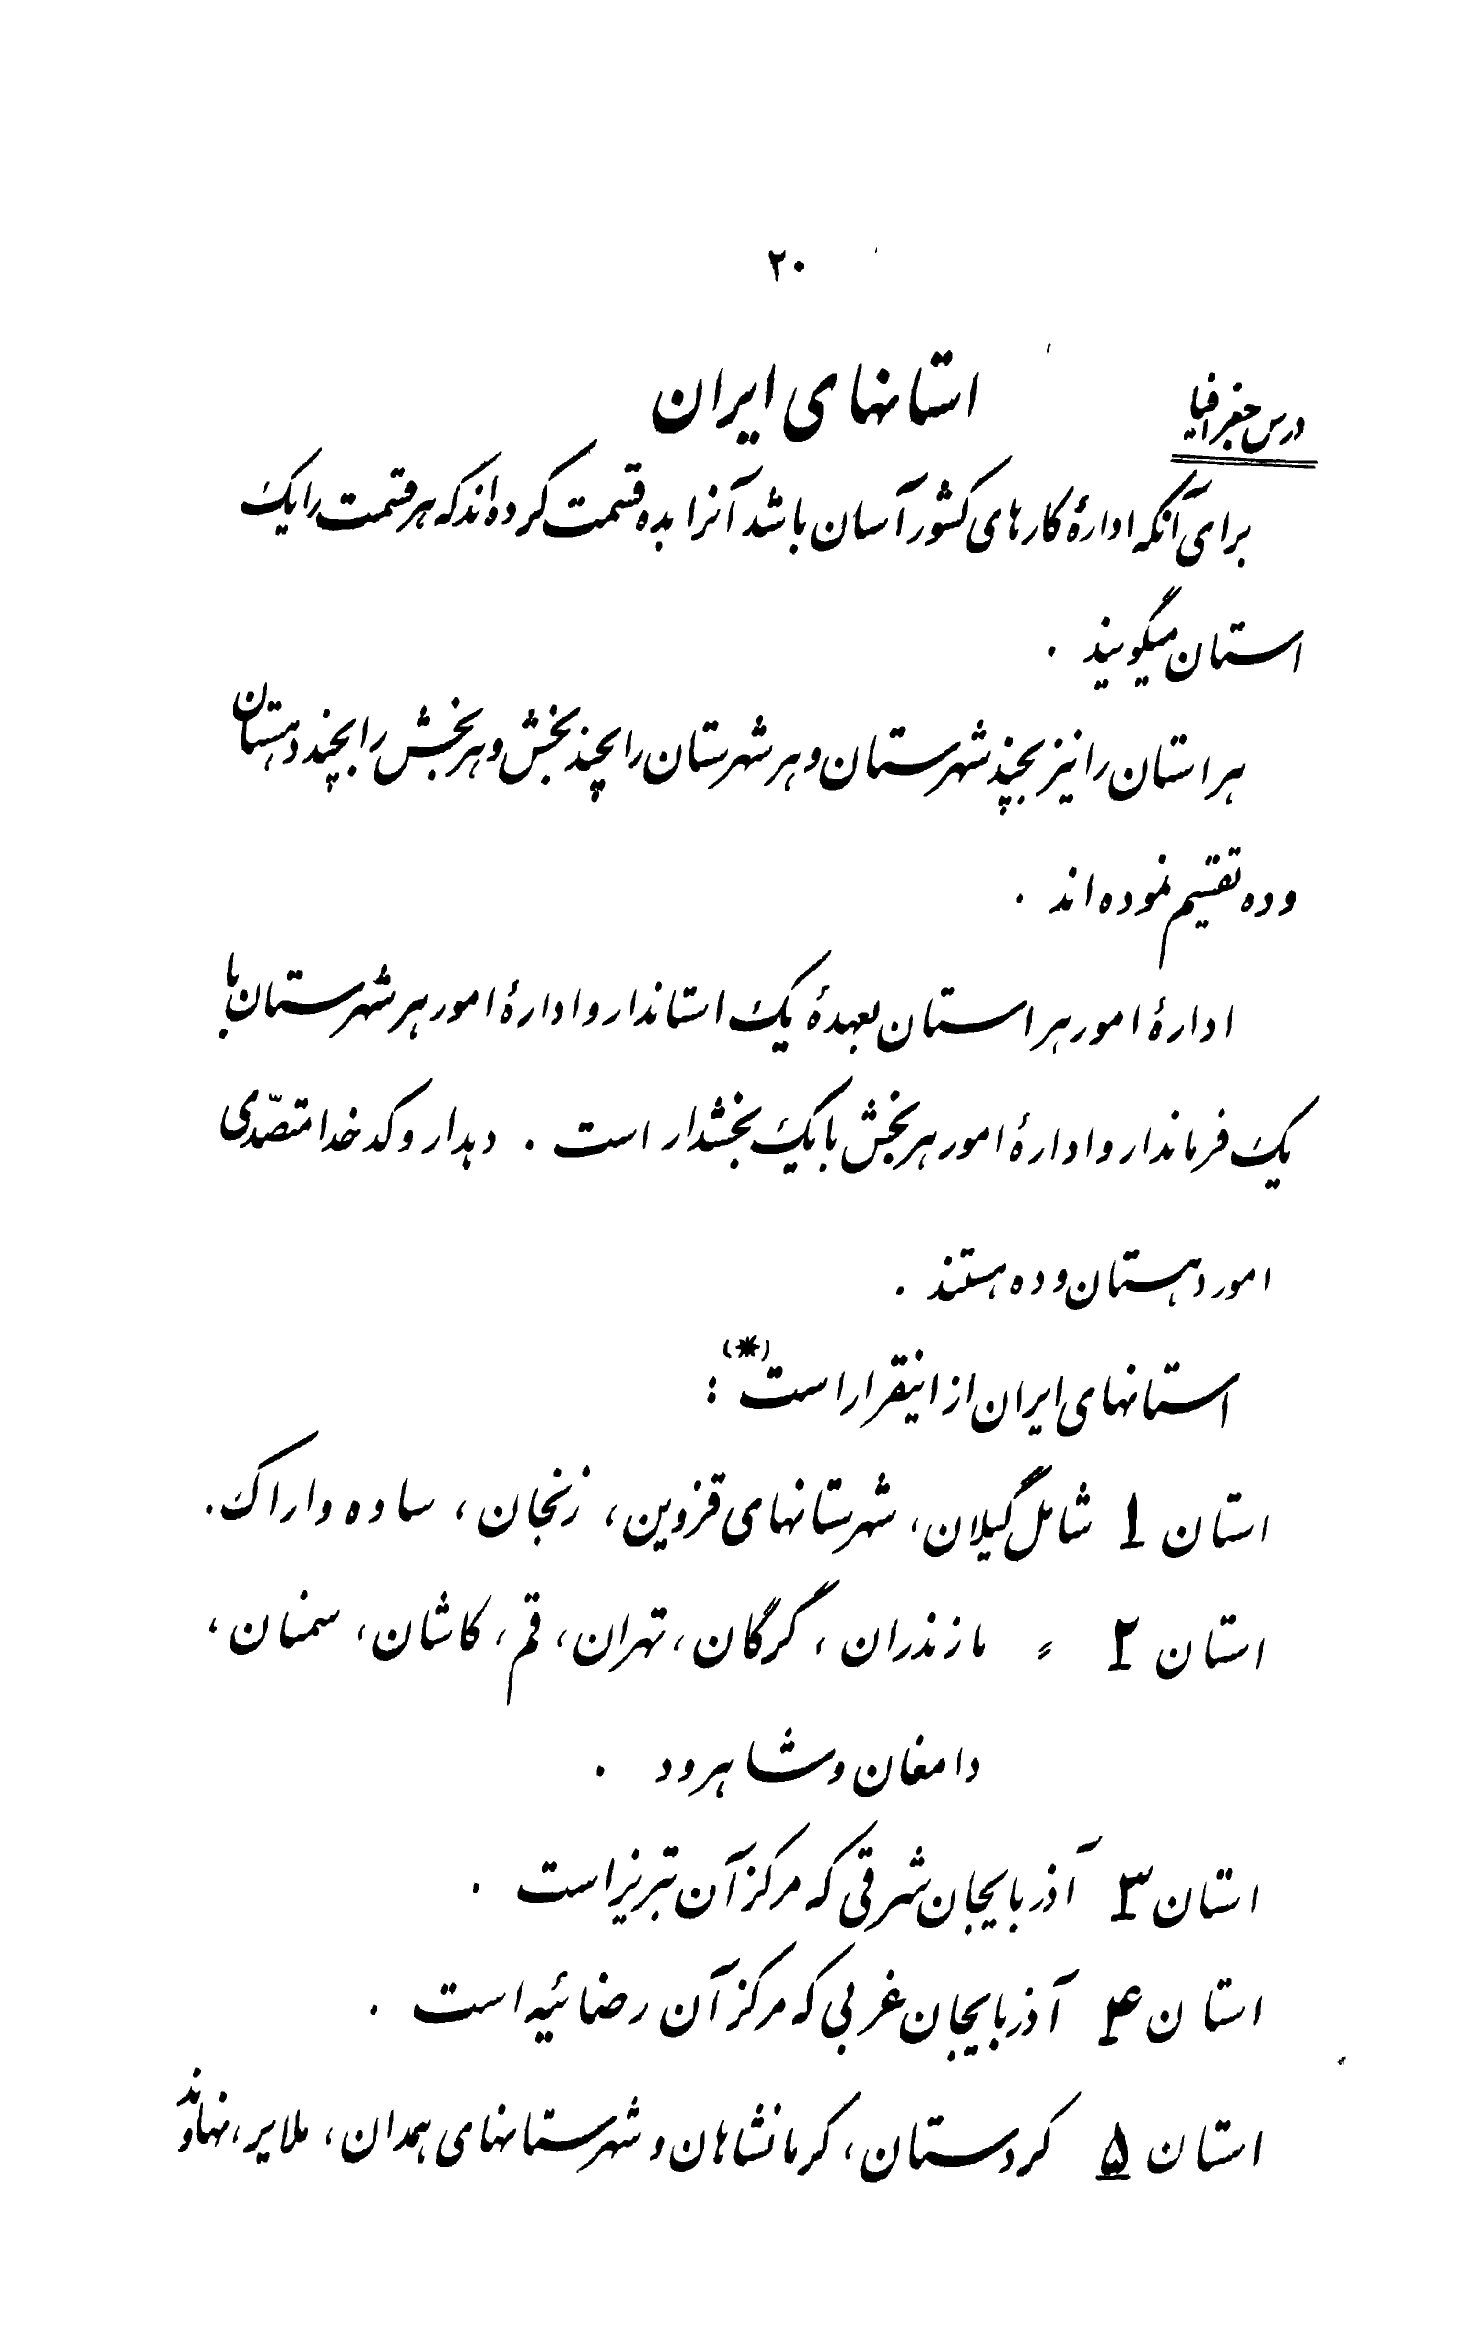 ۲۰
درس جغرافیا
استانهای ایران
برای آنکه ادارهٔ کارهای کشور آسان باشد آنرا بده قسمت کرده‌اند که هر قسمت را یک
استان میگویند .
هر استان را نیز بچند شهرستان و هر شهرستان را بچند بخش و هر بخش را بچند دهستان
و ده تقسیم نموده اند .
ادارهٔ امور هر استان بعهدهٔ یک استاندار و ادارهٔ امور هر شهرستان با
یک فرماندار و ادارهٔ امور هر بخش با یک بخشدار است . دهدار و کدخدا متصدّی
امور دهستان و ده هستند .
استانهای ایران از اینقرار است (*) :
استان ۱ شامل گیلان، شهرستانهای قزوین، زنجان، ساوه و اراک.
استان ۲ ٬٬ مازندران، گرگان، تهران، قم، کاشان، سمنان،
دامغان و شاهرود .
استان ۳ آذربایجان شرقی که مرکز آن تبریز است .
استان ۴ آذربایجان غربی که مرکز آن رضائیه است .
استان ۵ کردستان، کرمانشاهان و شهرستانهای همدان، ملایر، نهاوند